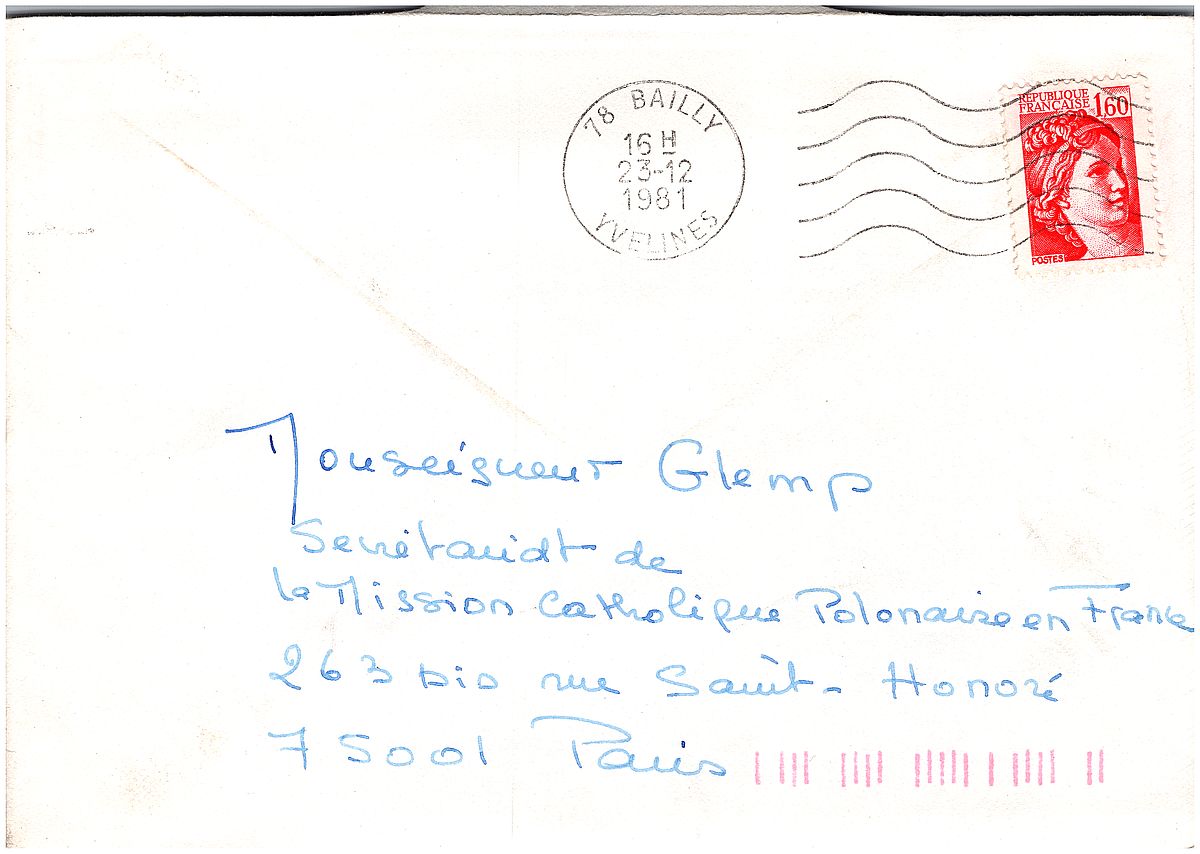 78 BAILLY
16 H
23-12
1981
YVELINES
RÉPUBLIQUE
FRANÇAISE 1,60
POSTES
Monseigneur Glemp
Secrétariat de
la Mission Catholique Polonaise en France
263 bis rue Saint-Honoré
75001 Paris